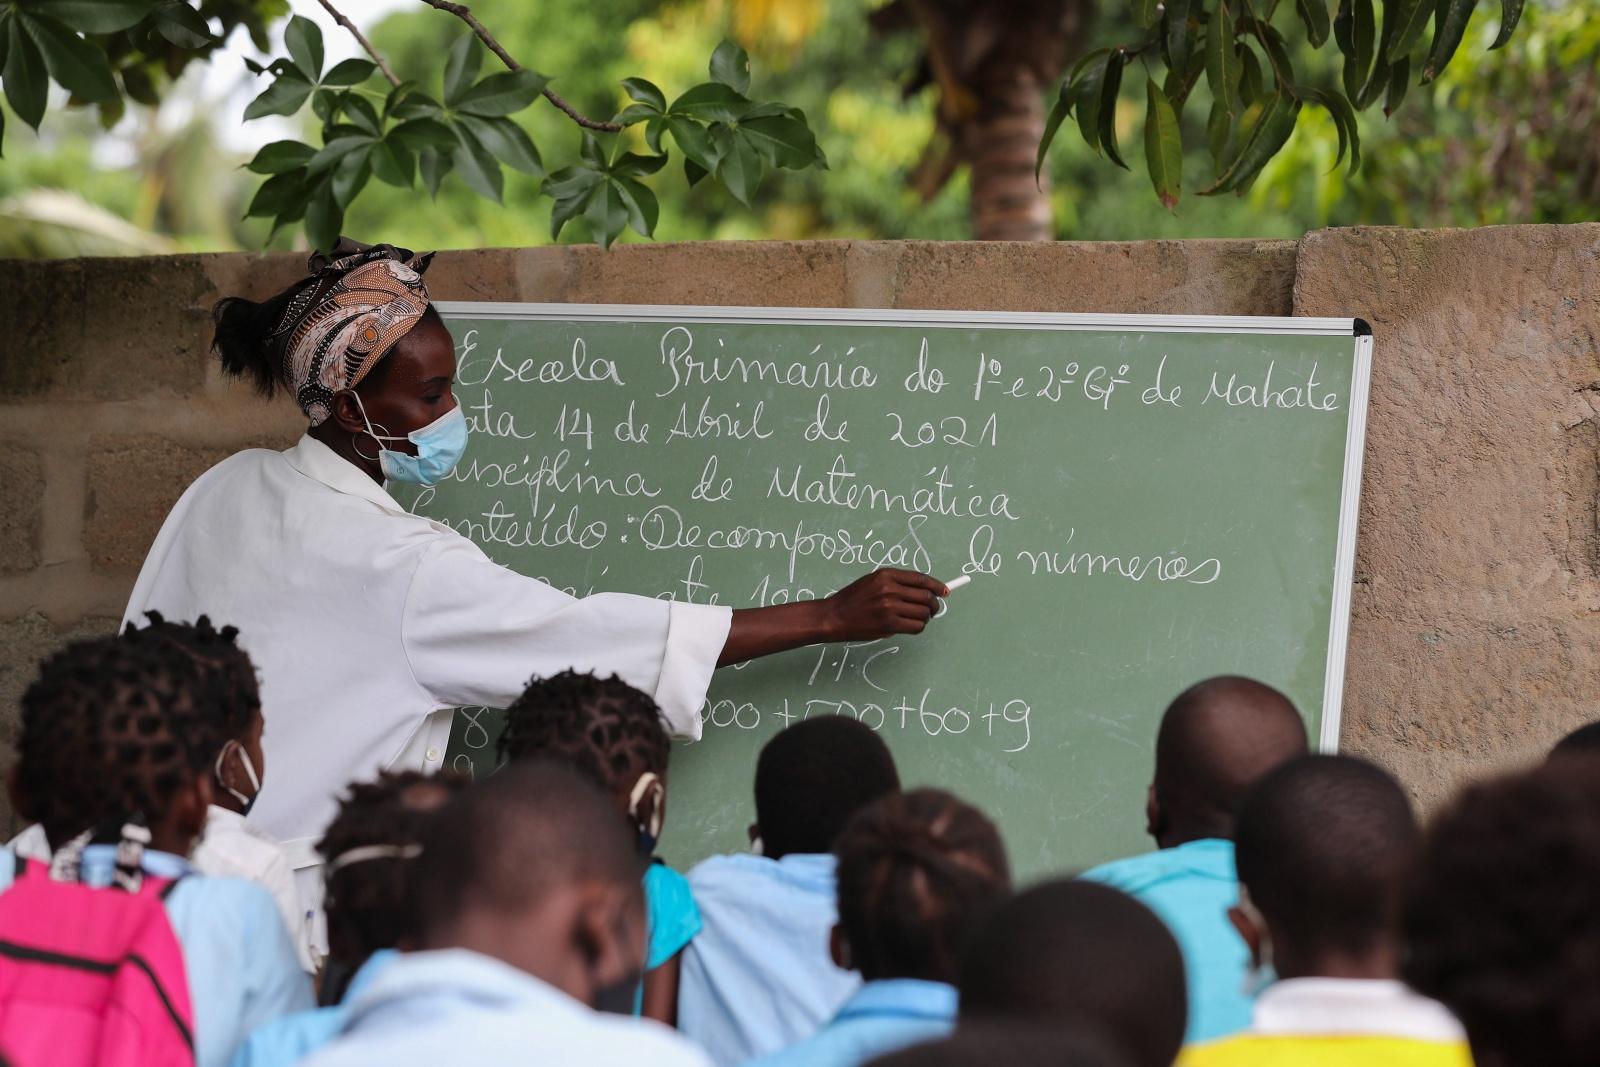 Escola Primária do 1º e 2º Gº de Mahate
ata 14 de Abril de 2021
Disciplina de Matemática
Conteúdo: Decomposição de números
até 1000
T.P.C
8 000+500+60+9
9